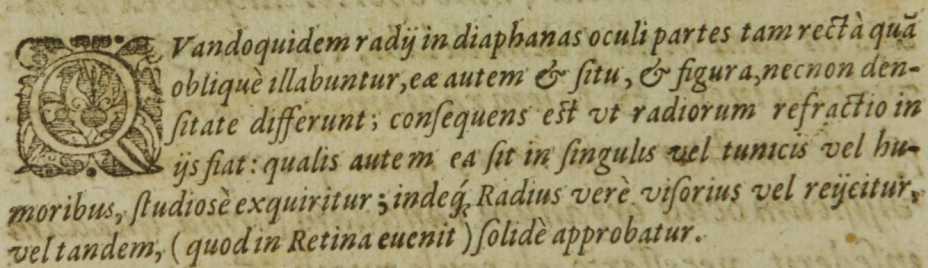 QVandoquidem radij in diaphanas oculi partes tam rectà quā
obliquè illabuntur, eæ autem & ſitu, & figura, necnon den-
ſitate differunt; conſequens eſt vt radiorum refractio in
ijs fiat: qualis autem ea ſit in ſingulis vel tunicis vel hu-
moribus, ſtudioſè exquiritur; indeq́; Radius verè viſorius vel reijcitur,
vel tandem, (quod in Retina euenit) ſolidè approbatur.